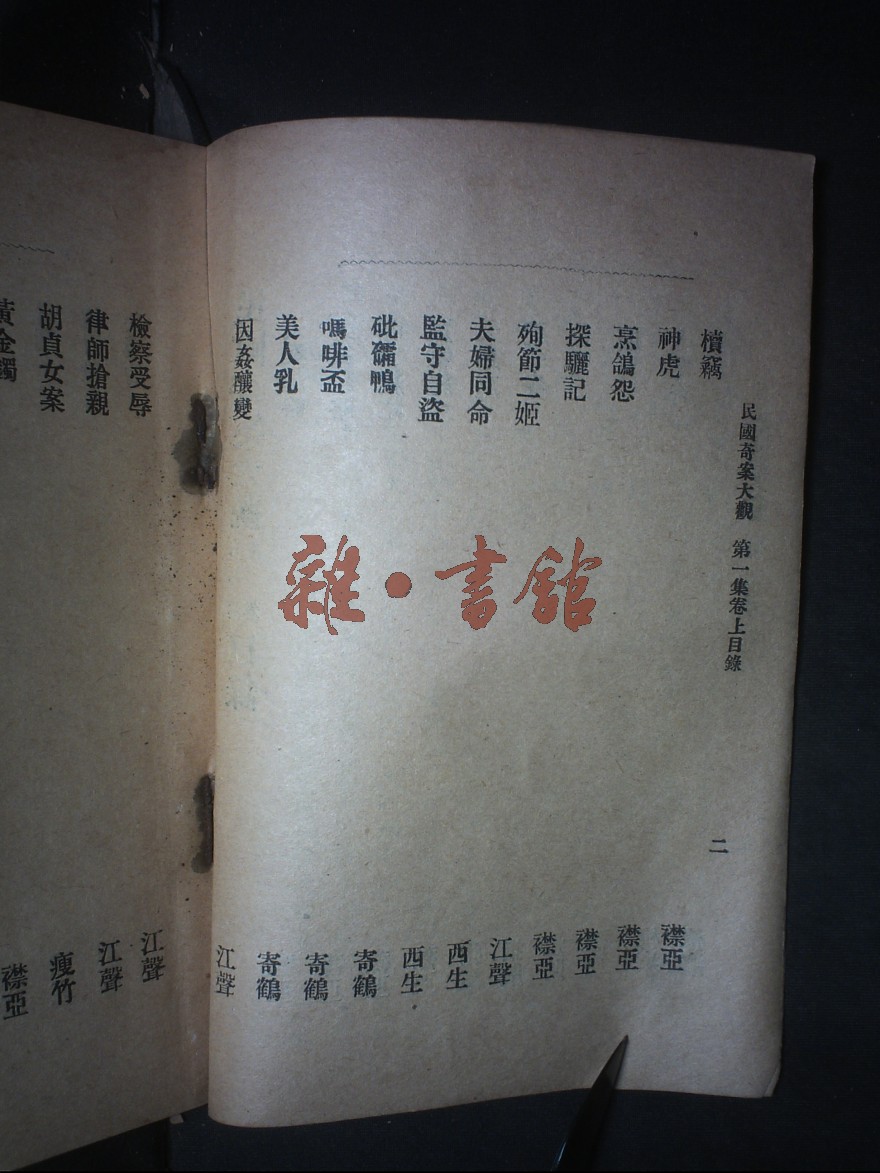 民國奇案大觀 第一集卷上目錄 二
櫝竊 襟亞
神虎 襟亞
烹鴿怨 襟亞
探驪記 襟亞
殉節二姬 江聲
夫婦同命 西生
監守自盜 西生
砒礵鴨 寄鶴
嗎啡盃 寄鶴
美人乳 寄鶴
因姦釀變 江聲
檢察受辱 江聲
律師搶親 江聲
胡貞女案 瘦竹
黃金鐲 襟亞
雜·書館